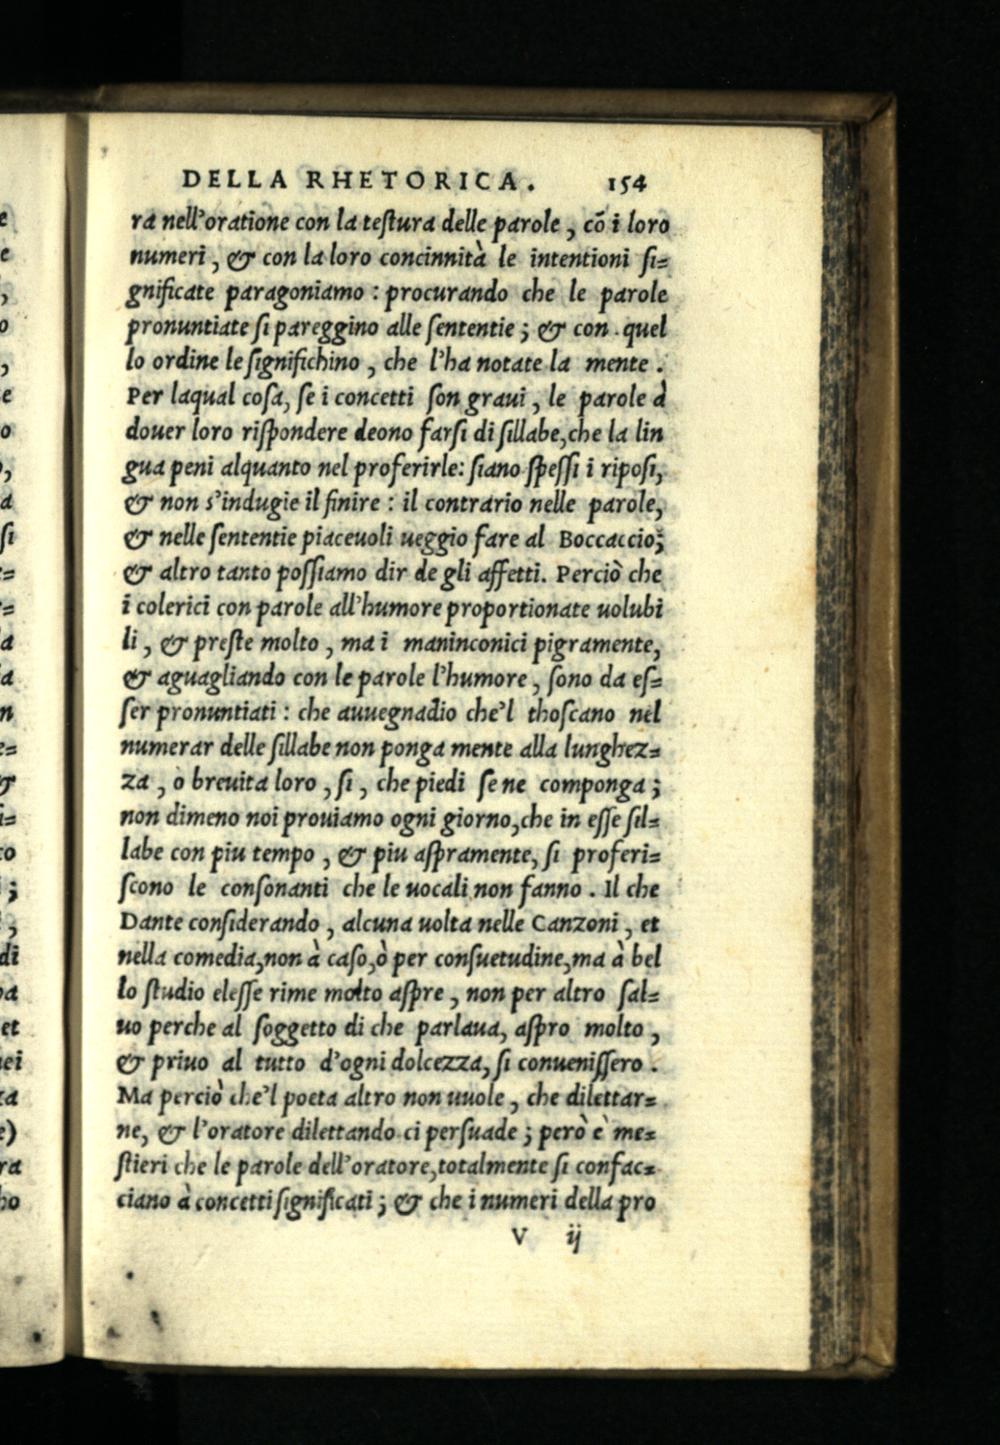 DELLA RHETORICA. 154
ra nell'oratione con la teſtura delle parole, cō i loro
numeri, & con la loro concinnità le intentioni ſi=
gnificate paragoniamo: procurando che le parole
pronuntiate ſi pareggino alle ſententie; & con quel
lo ordine le ſignifichino, che l'ha notate la mente.
Per laqual coſa, ſe i concetti ſon graui, le parole à
douer loro riſpondere deono farſi di ſillabe, che la lin
gua peni alquanto nel proferirle: ſiano ſpeſſi i ripoſi,
& non s'indugie il finire: il contrario nelle parole,
& nelle ſententie piaceuoli ueggio fare al Boccaccio;
& altro tanto poſſiamo dir de gli affetti. Perciò che
i colerici con parole all'humore proportionate uolubi
li, & preſte molto, ma i maninconici pigramente,
& aguagliando con le parole l'humore, ſono da eſ=
ſer pronuntiati: che auuegnadio che'l thoſcano nel
numerar delle ſillabe non ponga mente alla lunghez=
za, ò breuita loro, ſi, che piedi ſe ne componga;
non dimeno noi prouiamo ogni giorno, che in eſſe ſil=
labe con piu tempo, & piu aſpramente, ſi proferi=
ſcono le conſonanti che le uocali non fanno. Il che
Dante conſiderando, alcuna uolta nelle Canzoni, et
nella comedia, non à caſo, ò per conſuetudine, ma à bel
lo ſtudio eleſſe rime molto aſpre, non per altro ſal=
uo perche al ſoggetto di che parlaua, aſpro molto,
& priuo al tutto d'ogni dolcezza, ſi conueniſſero.
Ma perciò che'l poeta altro non uuole, che dilettar=
ne, & l'oratore dilettando ci perſuade; però è me=
ſtieri che le parole dell'oratore, totalmente ſi confac=
ciano à concetti ſignificati; & che i numeri della pro
V ij